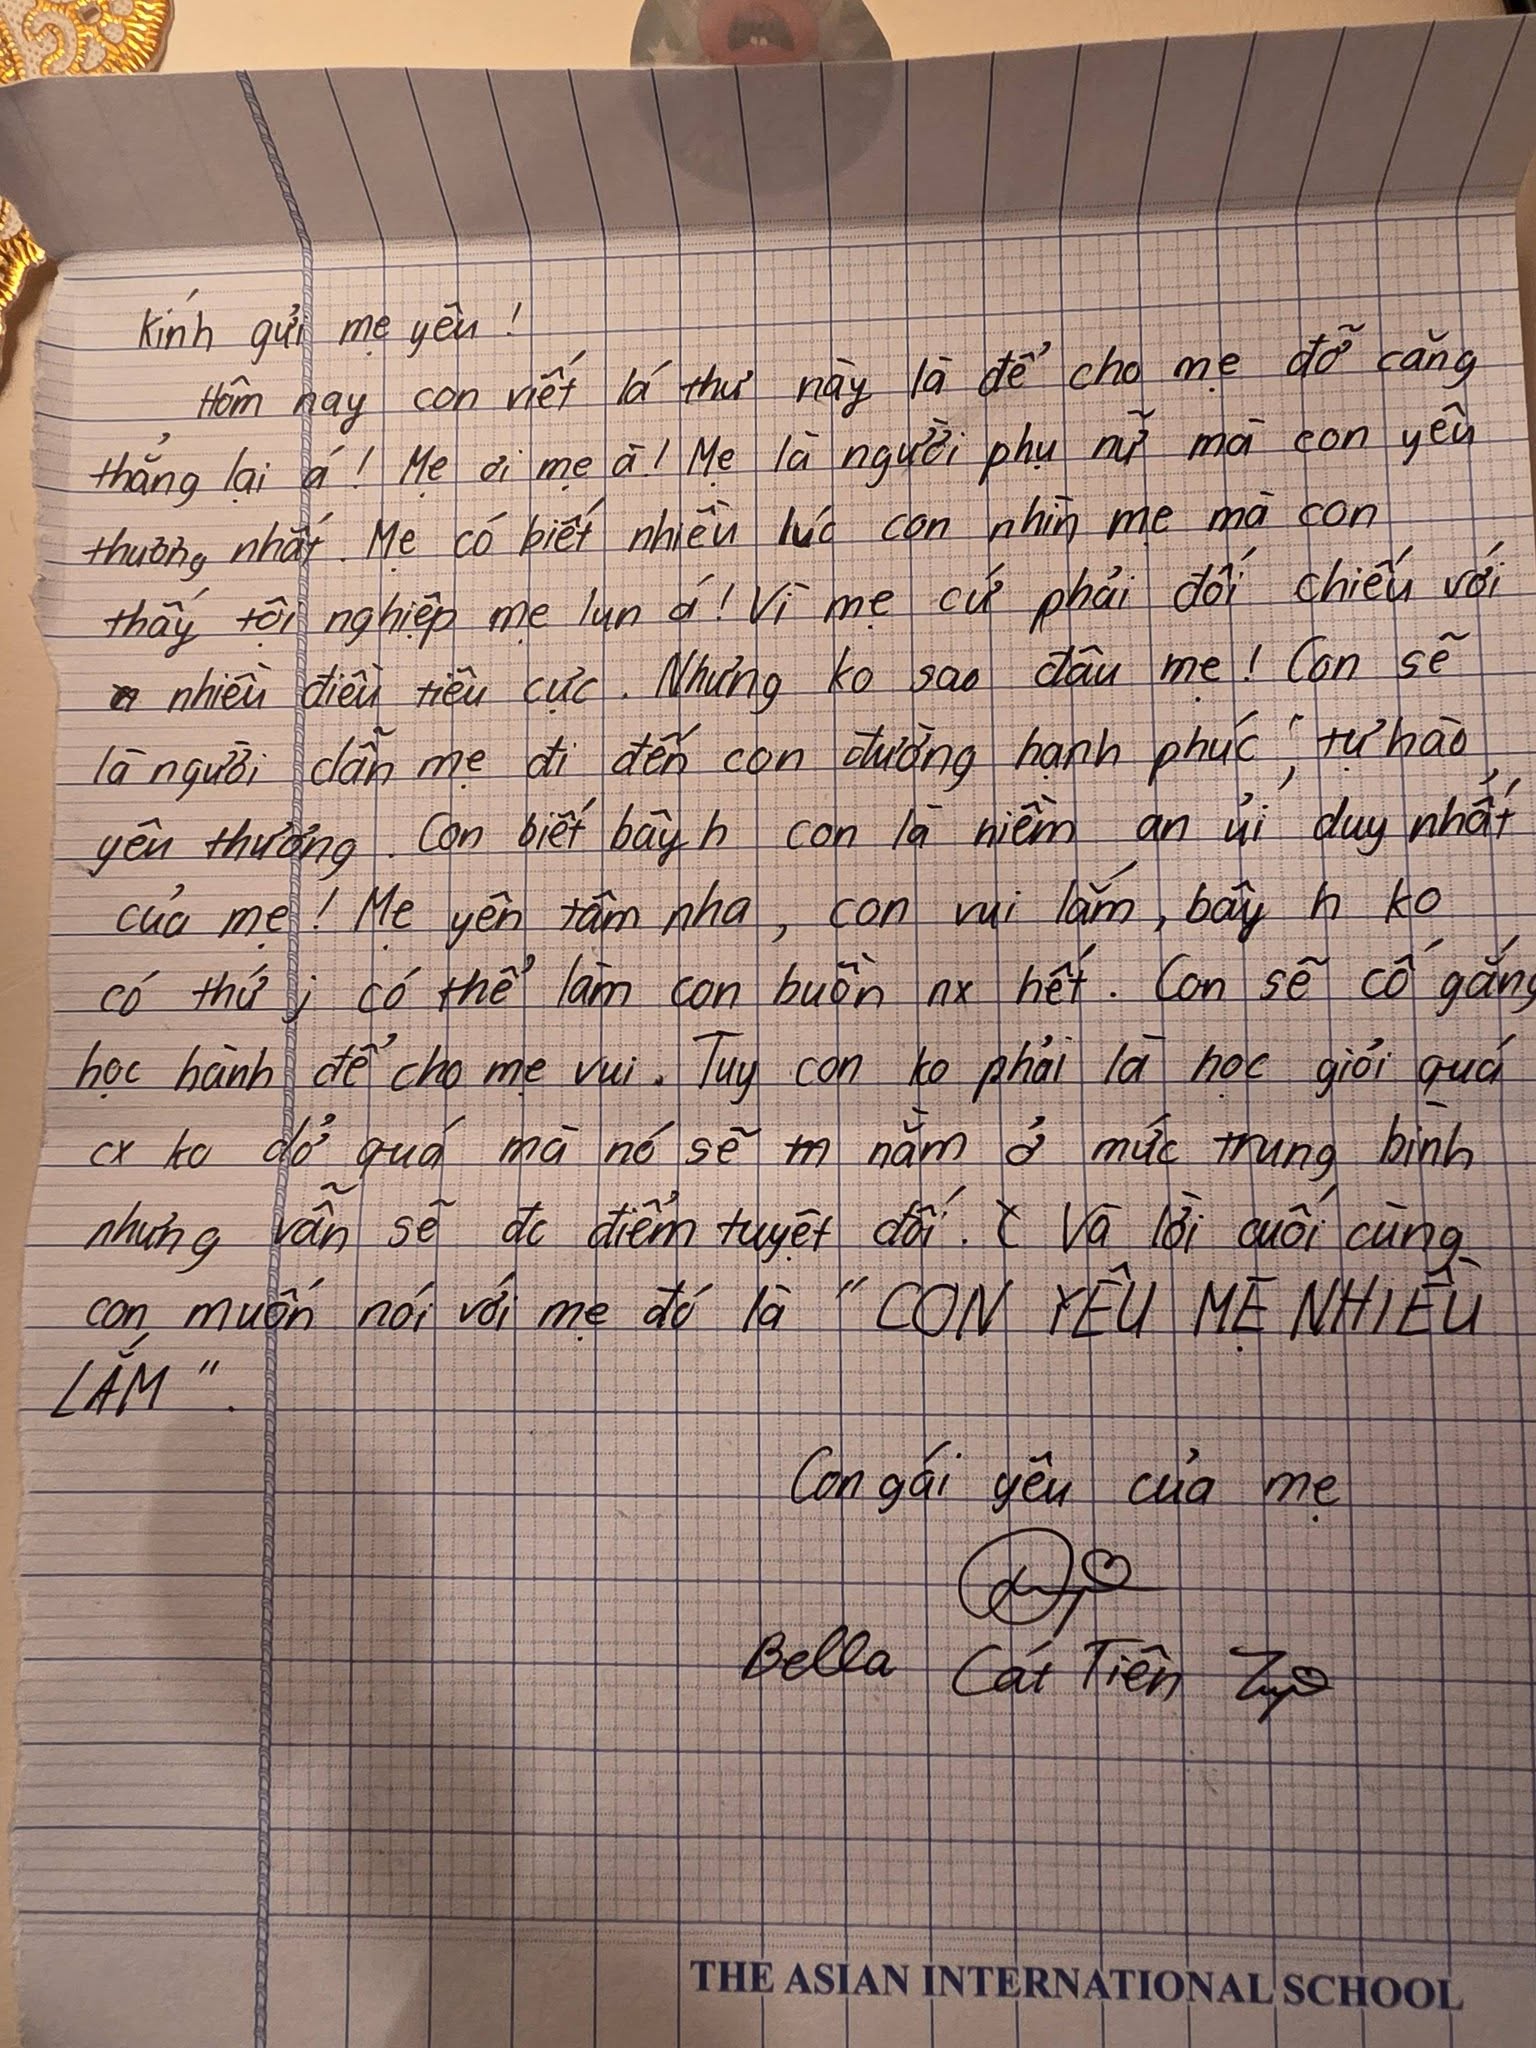 Kính gửi mẹ yêu !
Hôm nay con viết lá thư này là để cho mẹ đỡ căng
thẳng lại á ! Mẹ ơi mẹ à ! Mẹ là người phụ nữ mà con yêu
thương nhất. Mẹ có biết nhiều lúc con nhìn mẹ mà con
thấy tội nghiệp mẹ lun á ! Vì mẹ cứ phải đối chiếu với
nhiều điều tiêu cực. Nhưng ko sao đâu mẹ ! Con sẽ
là người dẫn mẹ đi đến con đường hạnh phúc, tự hào,
yêu thương. Con biết bây h con là niềm an ủi duy nhất
của mẹ ! Mẹ yên tâm nha, con vui lắm, bây h ko
có thứ j có thể làm con buồn nx hết. Con sẽ cố gắng
học hành để cho mẹ vui. Tuy con ko phải là học giỏi quá
cx ko dở quá mà nó sẽ nằm ở mức trung bình
nhưng vẫn sẽ đc điểm tuyệt đối. Và lời cuối cùng
con muốn nói với mẹ đó là "CON YÊU MẸ NHIỀU
LẮM".
Con gái yêu của mẹ
Bella Cát Tiên
THE ASIAN INTERNATIONAL SCHOOL